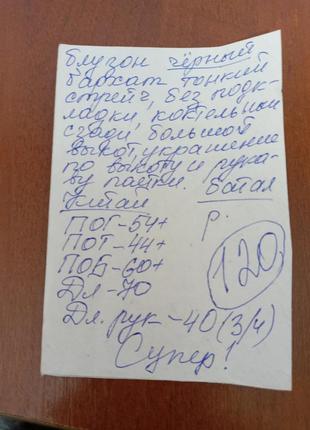 блузон чёрный
бархат тонкий
стрейч, без подк-
ладки, коктельный
сзади большой
выкот, украшение
по выкоту и рука-
ву паетки. Батал
Китай
ПОГ-54+ р.
ПОТ-44+ 120
ПОБ-60+
Дл-70
Дл. рук-40 (3/4)
Супер!